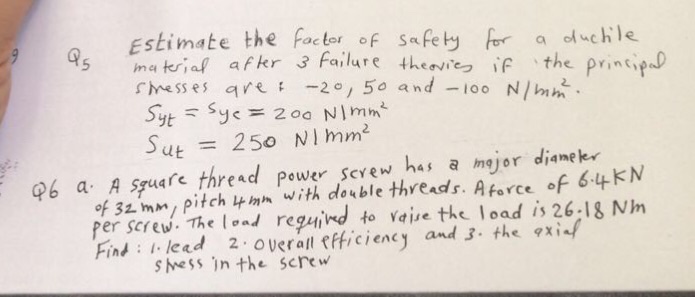 9
Q5 Estimate the factor of safety for a ductile
material after 3 failure theories if the principal
stresses are : -20, 50 and -100 N/mm².
Syt = Syc = 200 N/mm²
Sut = 250 N/mm²
Q6 a. A square thread power screw has a major diameter
of 32 mm, pitch 4 mm with double threads. A force of 6.4 KN
per screw. The load required to raise the load is 26.18 Nm
Find : 1. lead 2. overall efficiency and 3. the axial
stress in the screw